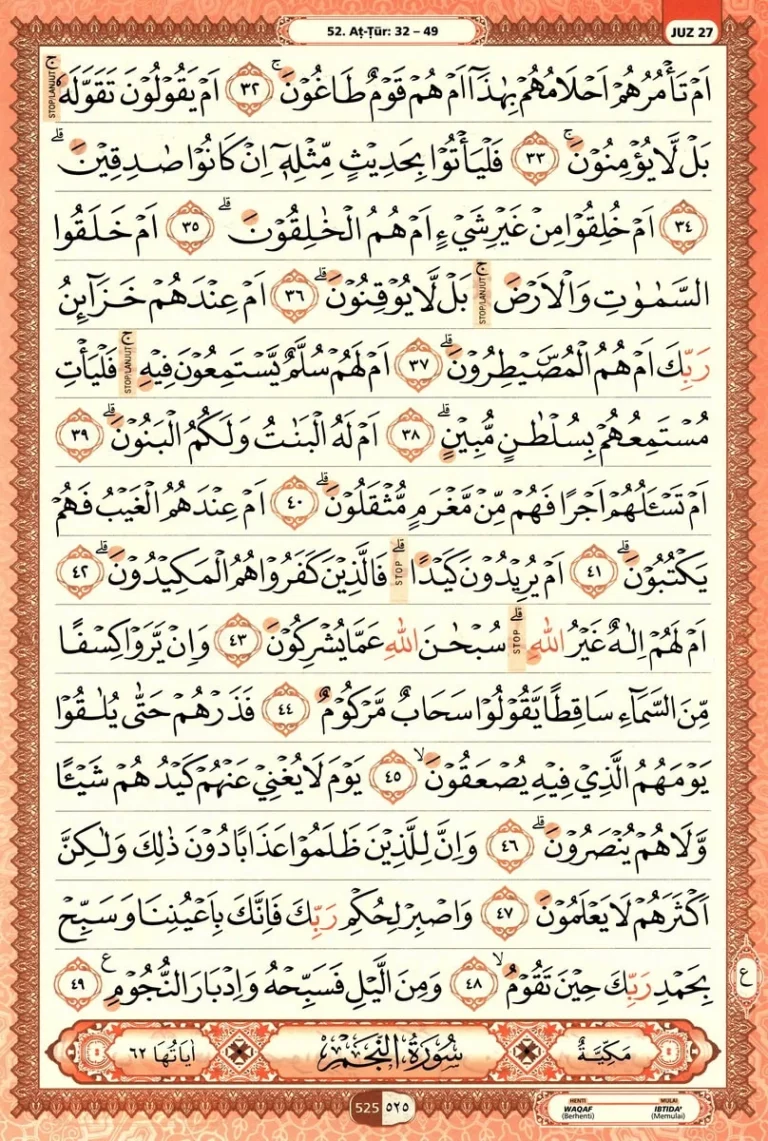 52. Aṭ-Ṭūr: 32 – 49
JUZ 27
اَمْ تَأْمُرُهُمْ اَحْلَامُهُمْ بِهٰذَآ اَمْ هُمْ قَوْمٌ طَاغُوْنَۚ ٣٢ اَمْ يَقُوْلُوْنَ تَقَوَّلَهٗۚ STOP/LANJUT
بَلْ لَّا يُؤْمِنُوْنَۚ ٣٣ فَلْيَأْتُوْا بِحَدِيْثٍ مِّثْلِهٖٓ اِنْ كَانُوْا صٰدِقِيْنَۗ
٣٤ اَمْ خُلِقُوْا مِنْ غَيْرِ شَيْءٍ اَمْ هُمُ الْخٰلِقُوْنَۗ ٣٥ اَمْ خَلَقُوا
السَّمٰوٰتِ وَالْاَرْضَۚ STOP/LANJUT بَلْ لَّا يُوْقِنُوْنَۗ ٣٦ اَمْ عِنْدَهُمْ خَزَاۤىِٕنُ
رَبِّكَ اَمْ هُمُ الْمُصَۣيْطِرُوْنَۗ ٣٧ اَمْ لَهُمْ سُلَّمٌ يَّسْتَمِعُوْنَ فِيْهِۚ STOP/LANJUT فَلْيَأْتِ
مُسْتَمِعُهُمْ بِسُلْطٰنٍ مُّبِيْنٍۗ ٣٨ اَمْ لَهُ الْبَنٰتُ وَلَكُمُ الْبَنُوْنَۗ ٣٩
اَمْ تَسْـَٔلُهُمْ اَجْرًا فَهُمْ مِّنْ مَّغْرَمٍ مُّثْقَلُوْنَۗ ٤٠ اَمْ عِنْدَهُمُ الْغَيْبُ فَهُمْ
يَكْتُبُوْنَۗ ٤١ اَمْ يُرِيْدُوْنَ كَيْدًاۗ STOP فَالَّذِيْنَ كَفَرُوْا هُمُ الْمَكِيْدُوْنَۗ ٤٢
اَمْ لَهُمْ اِلٰهٌ غَيْرُ اللّٰهِۗ STOP سُبْحٰنَ اللّٰهِ عَمَّا يُشْرِكُوْنَ ٤٣ وَاِنْ يَّرَوْا كِسْفًا
مِّنَ السَّمَاۤءِ سَاقِطًا يَّقُوْلُوْا سَحَابٌ مَّرْكُوْمٌ ٤٤ فَذَرْهُمْ حَتّٰى يُلٰقُوْا
يَوْمَهُمُ الَّذِيْ فِيْهِ يُصْعَقُوْنَۙ ٤٥ يَوْمَ لَا يُغْنِيْ عَنْهُمْ كَيْدُهُمْ شَيْـًٔا
وَّلَا هُمْ يُنْصَرُوْنَۗ ٤٦ وَاِنَّ لِلَّذِيْنَ ظَلَمُوْا عَذَابًا دُوْنَ ذٰلِكَ وَلٰكِنَّ
اَكْثَرَهُمْ لَا يَعْلَمُوْنَ ٤٧ وَاصْبِرْ لِحُكْمِ رَبِّكَ فَاِنَّكَ بِاَعْيُنِنَا وَسَبِّحْ
بِحَمْدِ رَبِّكَ حِيْنَ تَقُوْمُۙ ٤٨ وَمِنَ الَّيْلِ فَسَبِّحْهُ وَاِدْبَارَ النُّجُوْمِ ࣖ ٤٩
ع
مَكِّيَّةٌ سُوْرَةُ النَّجْمِ اٰيَاتُهَا ٦٢
525 ٥٢٥
HENTI MULAI
WAQAF IBTIDA'
(Berhenti) (Memulai)